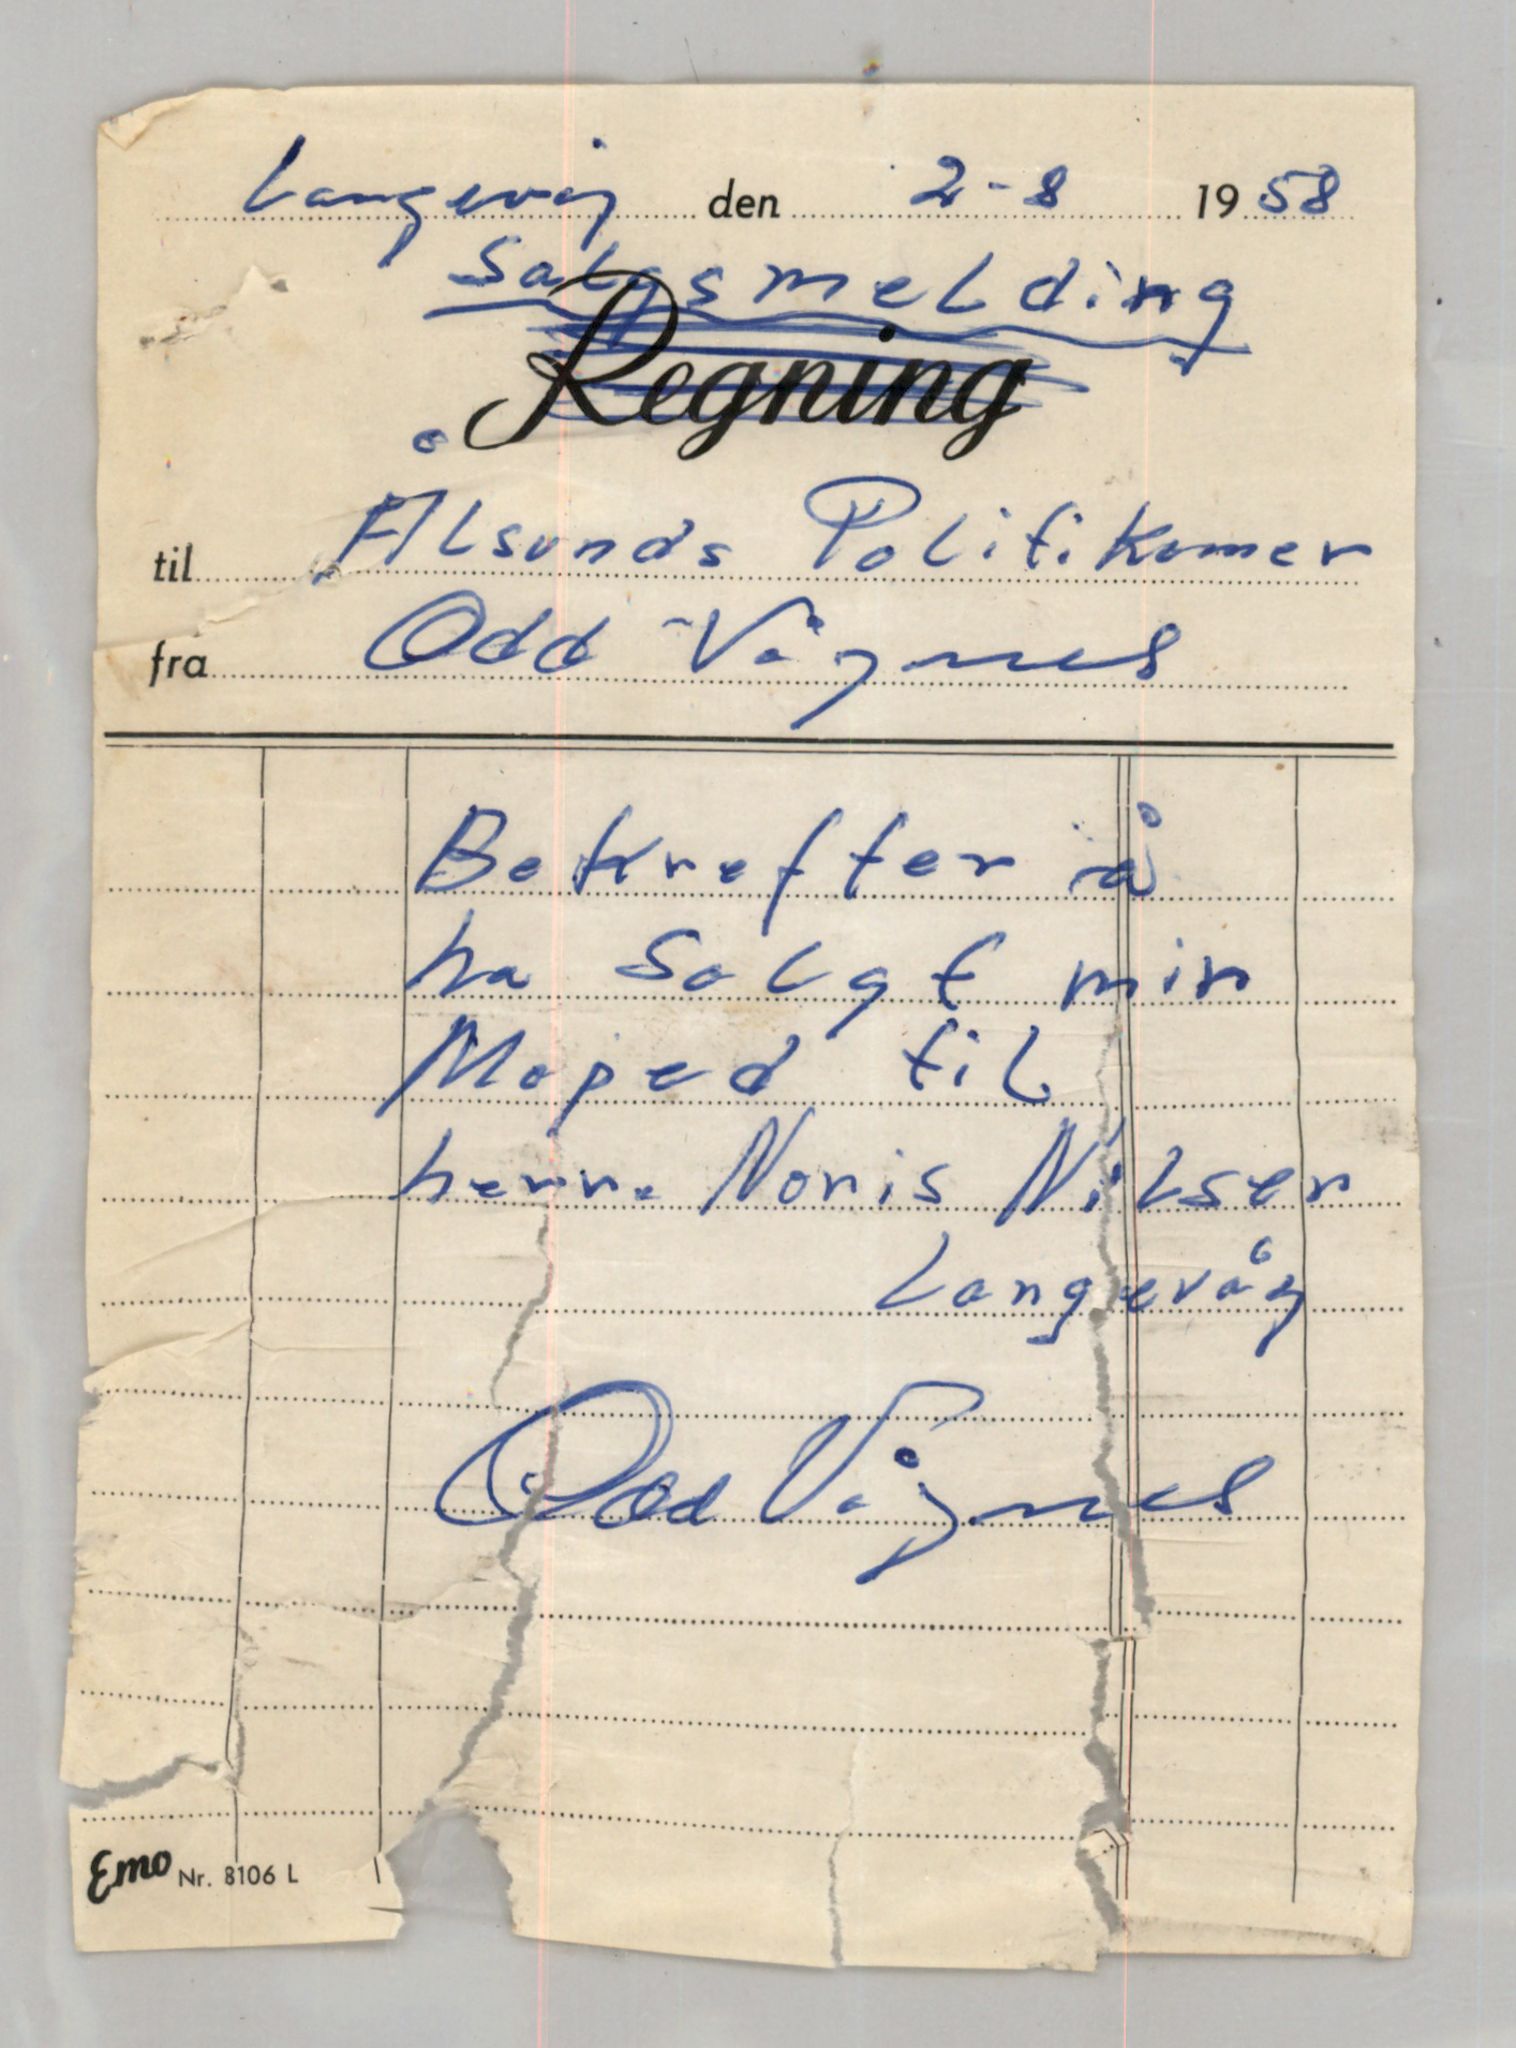 Langevåg den 2-8 1958
Salgsmelding
Regning
til Ålsunds Politikamer
fra Odd Vågnes
Bekrefter å
ha Solgt min
Moped til
herr. Noris Nilsen
Langevåg
Odd Vågnes
Emo Nr. 8106 L